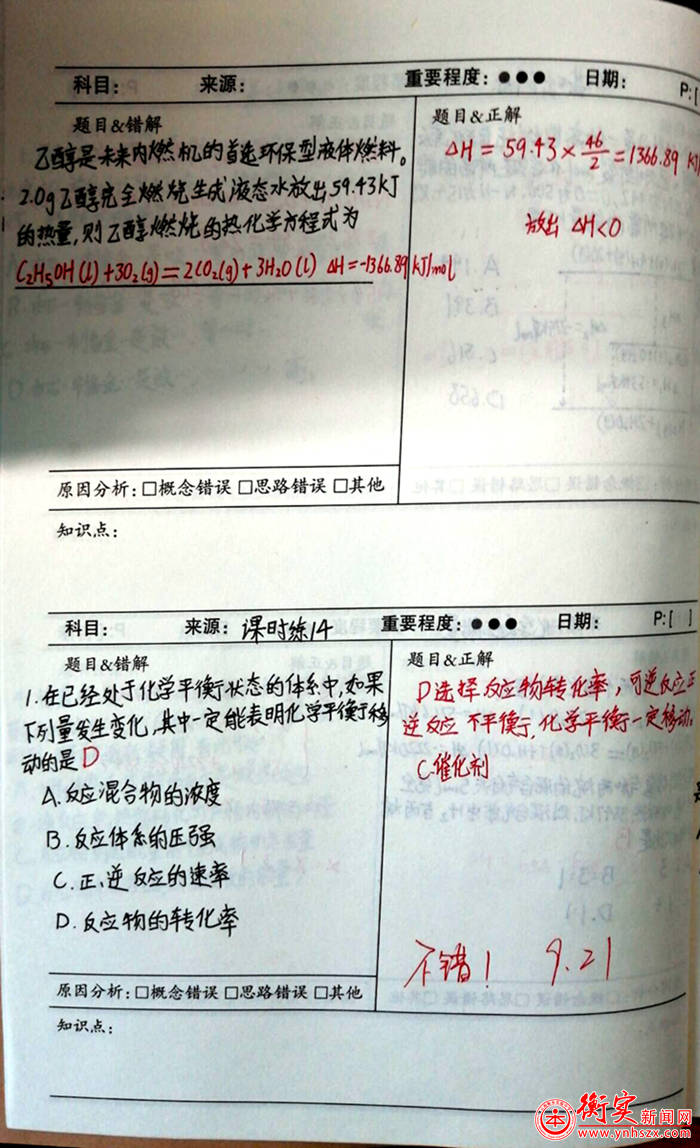 科目： 来源： 重要程度：●●● 日期： P:[
题目&错解
乙醇是未来内燃机的首选环保型液体燃料。
2.0g乙醇完全燃烧生成液态水放出59.43kJ
的热量，则乙醇燃烧的热化学方程式为
C₂H₅OH(l)+3O₂(g)=2CO₂(g)+3H₂O(l) ΔH=-1366.89 kJ/mol
题目&正解
ΔH=59.43×46/2=1366.89 kJ
放出 ΔH<0
原因分析：□概念错误 □思路错误 □其他
知识点：
科目： 来源：课时练14 重要程度：●●● 日期： P:[ ]
题目&错解
1.在已经处于化学平衡状态的体系中，如果
下列量发生变化，其中一定能表明化学平衡移
动的是 D
A.反应混合物的浓度
B.反应体系的压强
C.正、逆反应的速率
D.反应物的转化率
题目&正解
D选择反应物转化率，可逆反应正
逆反应不平衡，化学平衡一定移动。
C.催化剂
不错！ 9.21
原因分析：□概念错误 □思路错误 □其他
知识点：
衡实新闻网
www.ynhszx.com